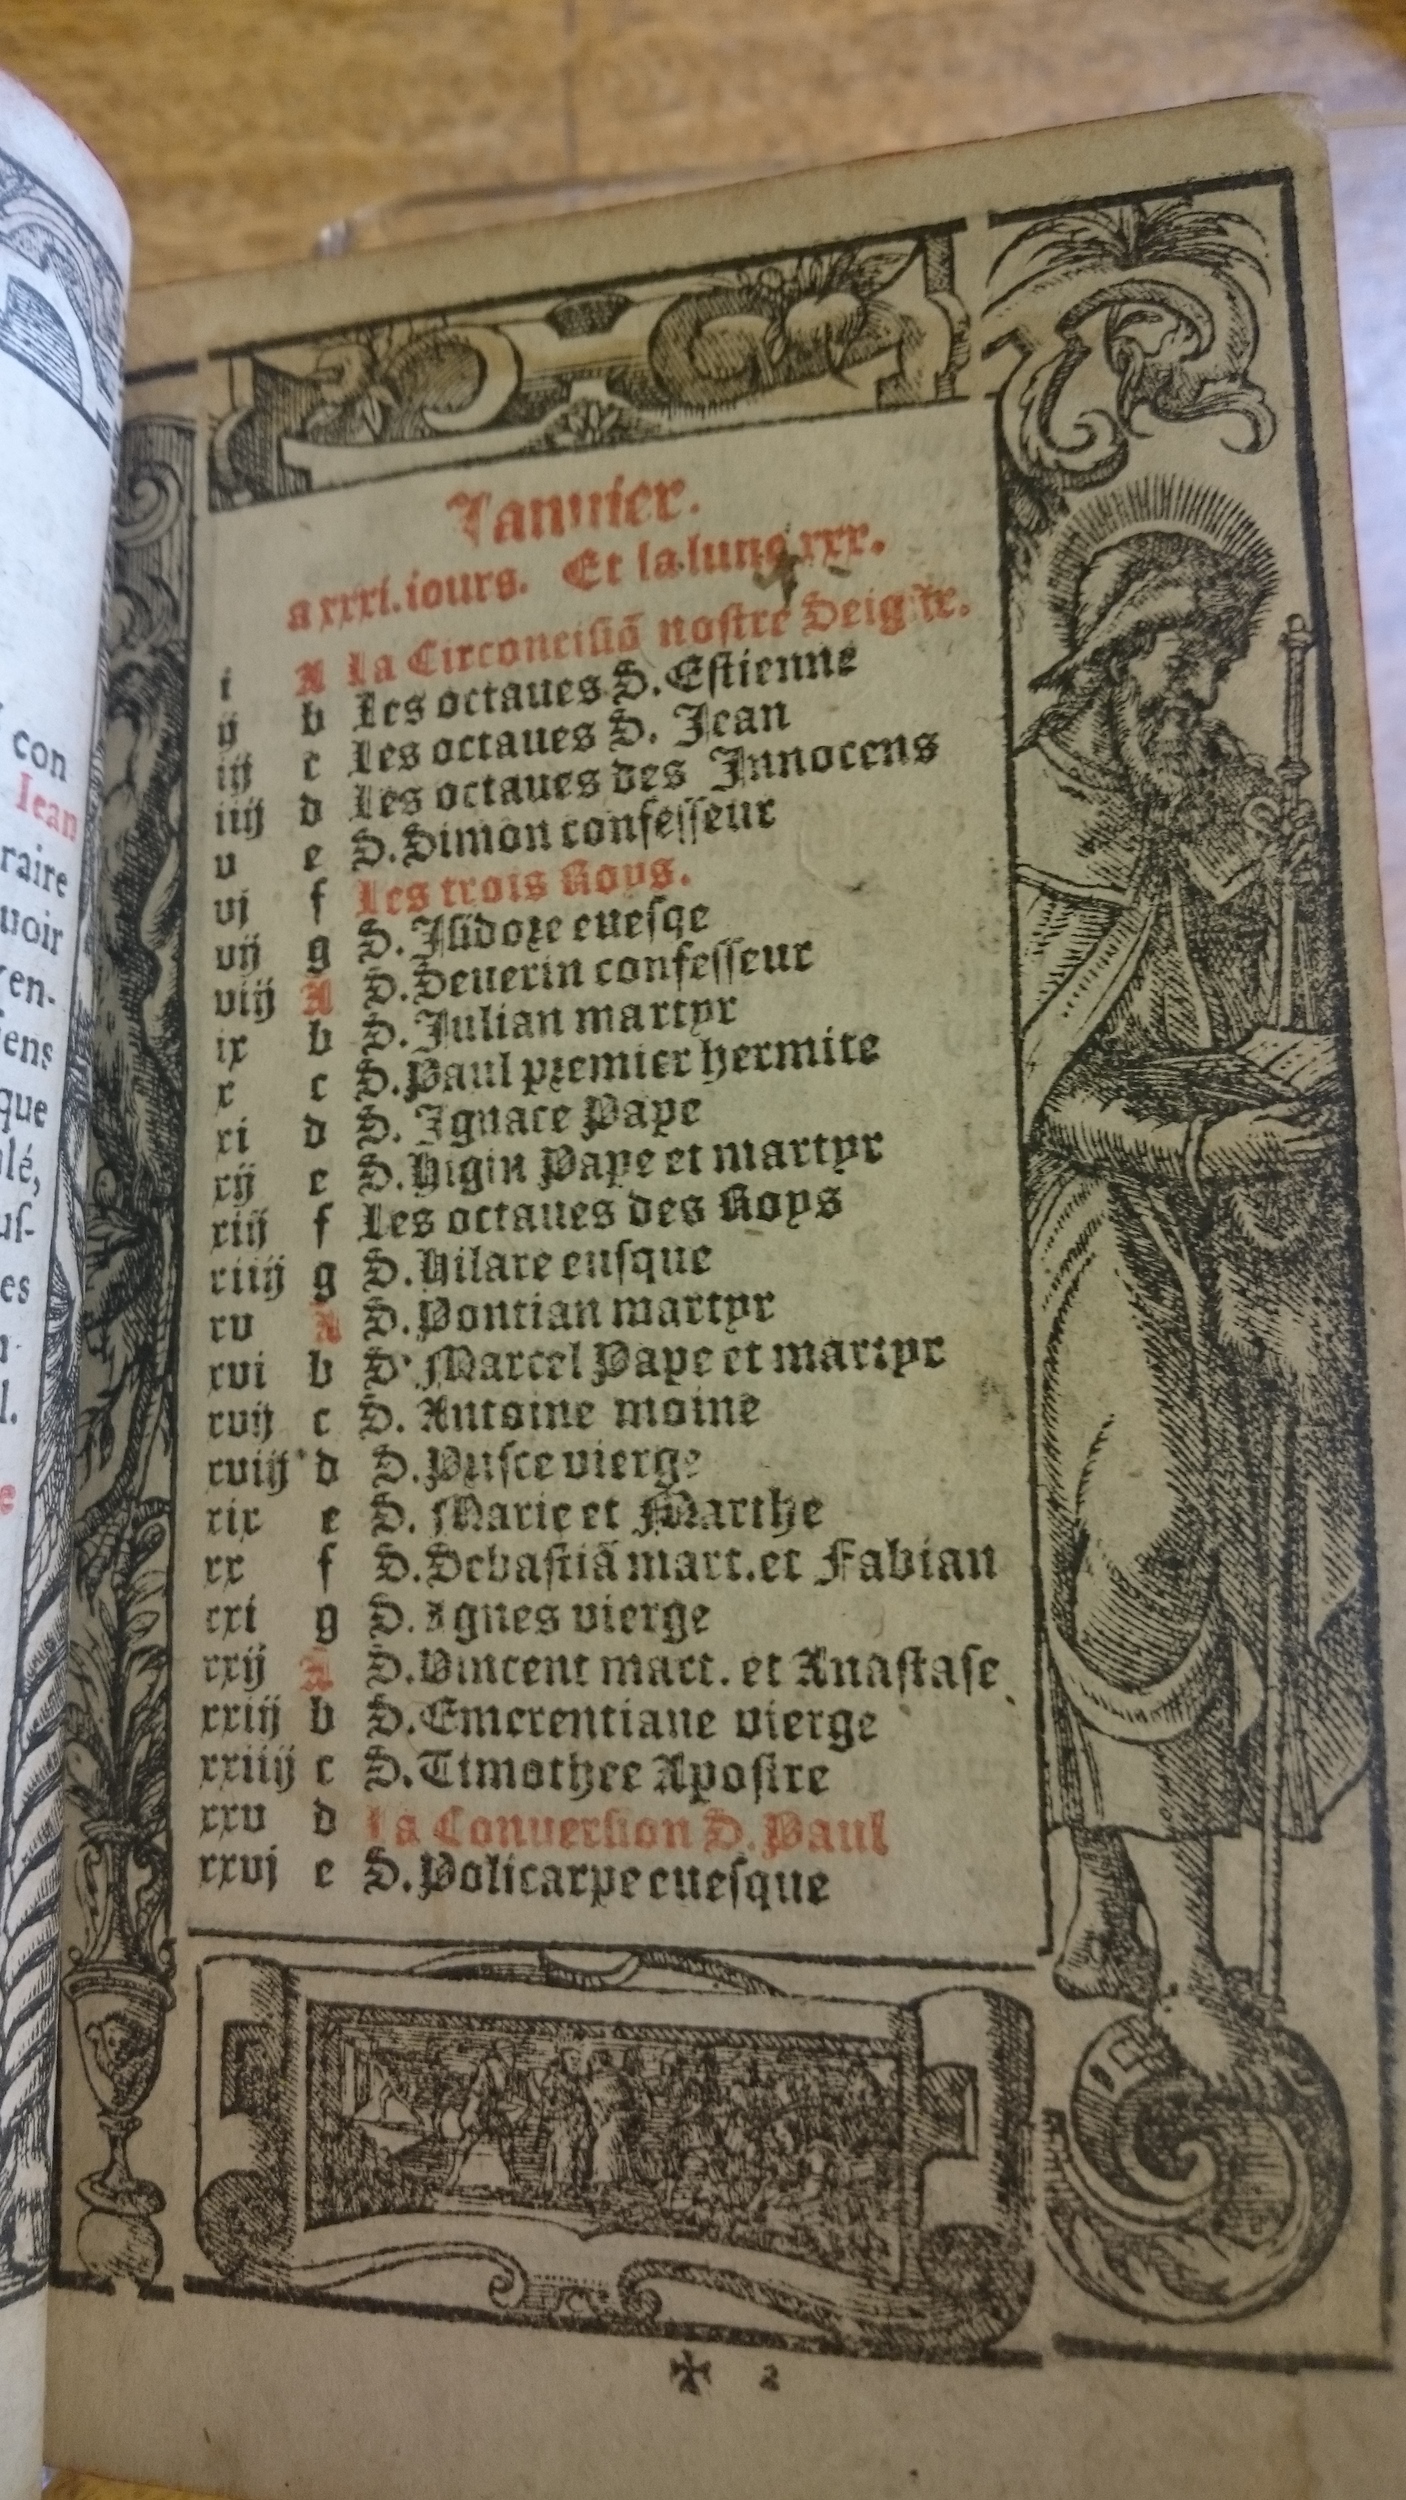 con
Iean
raire
uoir
en-
iens
que
lé,
uſ-
es
l.
e
Ianuier.
a xxxi. iours. Et la lune xxx.
i A La Circonciſiõ noſtre Seigñr.
ij b Les octaues S. Eſtienne
iij c Les octaues S. Jean
iiij d Les octaues des Innocens
v e S. Simon confeſſeur
vj f Les trois Roys.
vij g S. Iſidoꝛe eueſqe
viij A S. Seuerin confeſſeur
ix b S. Julian martyr
x c S. Paul pꝛemier hermite
xi d S. Ignace Pape
xij e S. Higin Pape et martyr
xiij f Les octaues des Roys
xiiij g S. Hilare euſque
xv A S. Pontian martyr
xvi b S. Marcel Pape et martyr
xvij c S. Antoine moine
xviij d S. Pꝛiſce vierge
xix e S. Marie et Marthe
xx f S. Sebaſtiã mart. et Fabian
xxi g S. Agnes vierge
xxij A S. Vincent mart. et Anaſtaſe
xxiij b S. Emerentiane vierge
xxiiij c S. Timothee Apoſtre
xxv d La Conuerſion S. Paul
xxvj e S. Policarpe eueſque
✠ 2